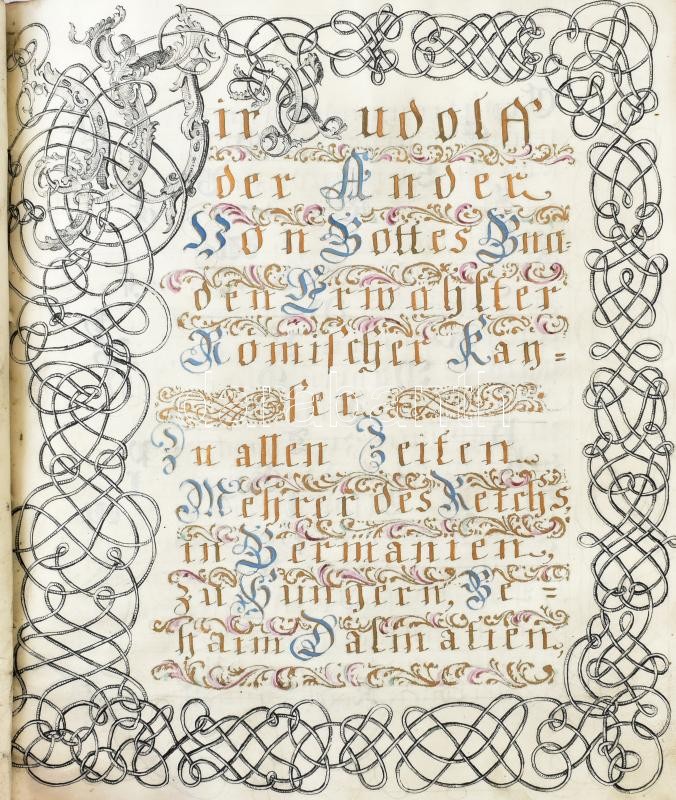 Wir Rudolff
der Ander
Von Gottes Gna-
den Erwöhlter
Römischer Kay=
ser
Zu allen Zeiten
Mehrer des Reichs,
in Germanien,
zu Hungern, Be=
haim Dalmatien,